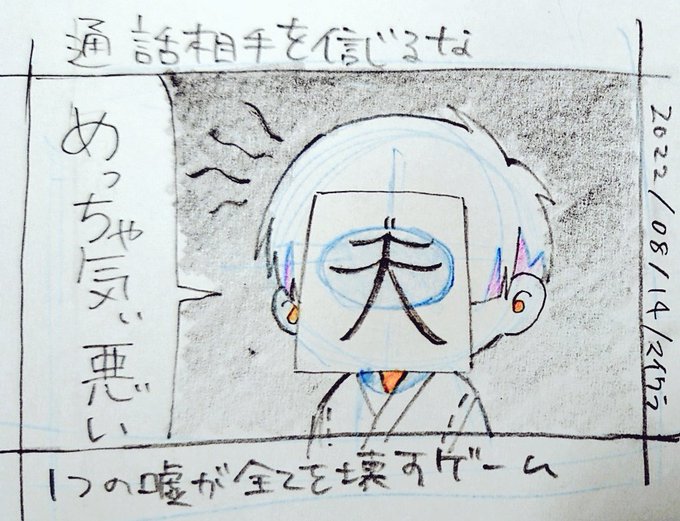 通話相手を信じるな
めっちゃ気ぃ悪い
天
2022/08/14/
1つの嘘が全てを壊すゲーム